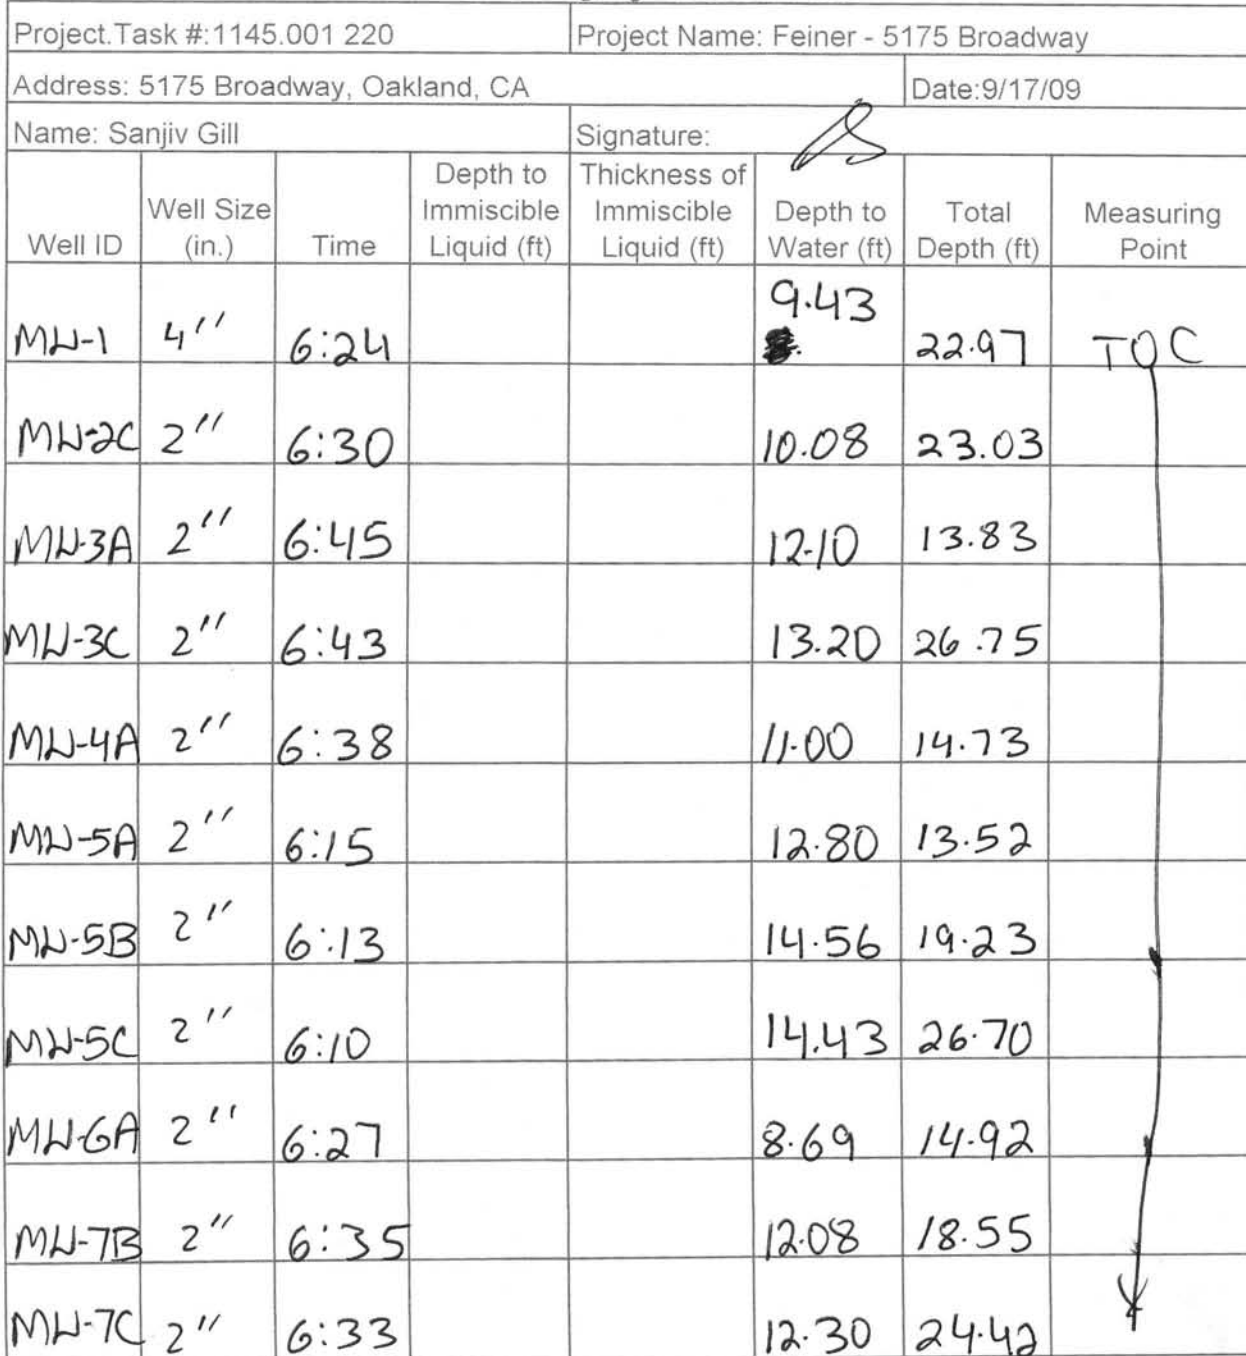 Project.Task #:1145.001 220 Project Name: Feiner - 5175 Broadway
Address: 5175 Broadway, Oakland, CA Date:9/17/09
Name: Sanjiv Gill Signature:
Well ID Well Size (in.) Time Depth to Immiscible Liquid (ft) Thickness of Immiscible Liquid (ft) Depth to Water (ft) Total Depth (ft) Measuring Point
MW-1 4" 6:24 9.43 22.97 TOC
MW-2C 2" 6:30 10.08 23.03
MW-3A 2" 6:45 12.10 13.83
MW-3C 2" 6:43 13.20 26.75
MW-4A 2" 6:38 11.00 14.73
MW-5A 2" 6:15 12.80 13.52
MW-5B 2" 6:13 14.56 19.23
MW-5C 2" 6:10 14.43 26.70
MW-6A 2" 6:27 8.69 14.92
MW-7B 2" 6:35 12.08 18.55
MW-7C 2" 6:33 12.30 24.42